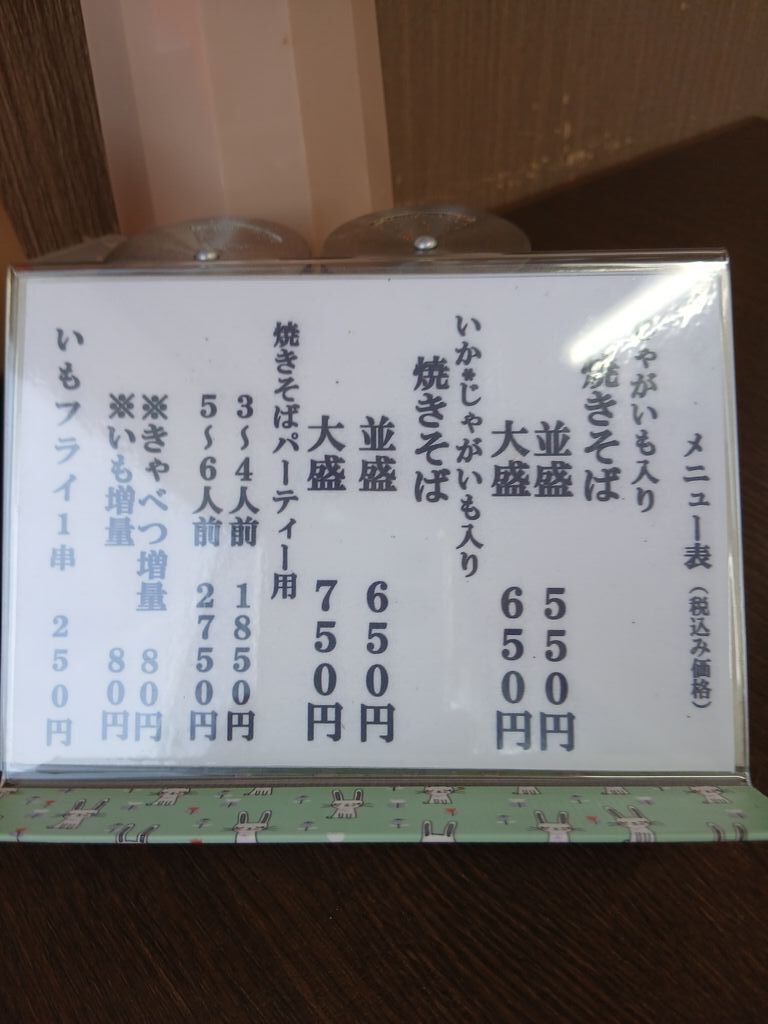 メニュー表（税込み価格）
ゃがいも入り
焼きそば
並盛 550円
大盛 650円
いか*じゃがいも入り
焼きそば
並盛 650円
大盛 750円
焼きそばパーティー用
3～4人前 1850円
5～6人前 2750円
※きゃべつ増量 80円
※いも増量 80円
いもフライ1串 250円